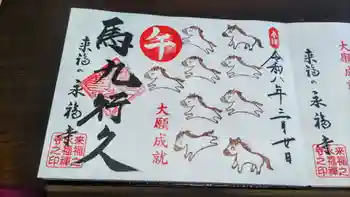 奉拝
令和八年二月廿日
午
馬九行久
大願成就
来福の永福寺
来福之
寺之印
来福の永福寺
大願